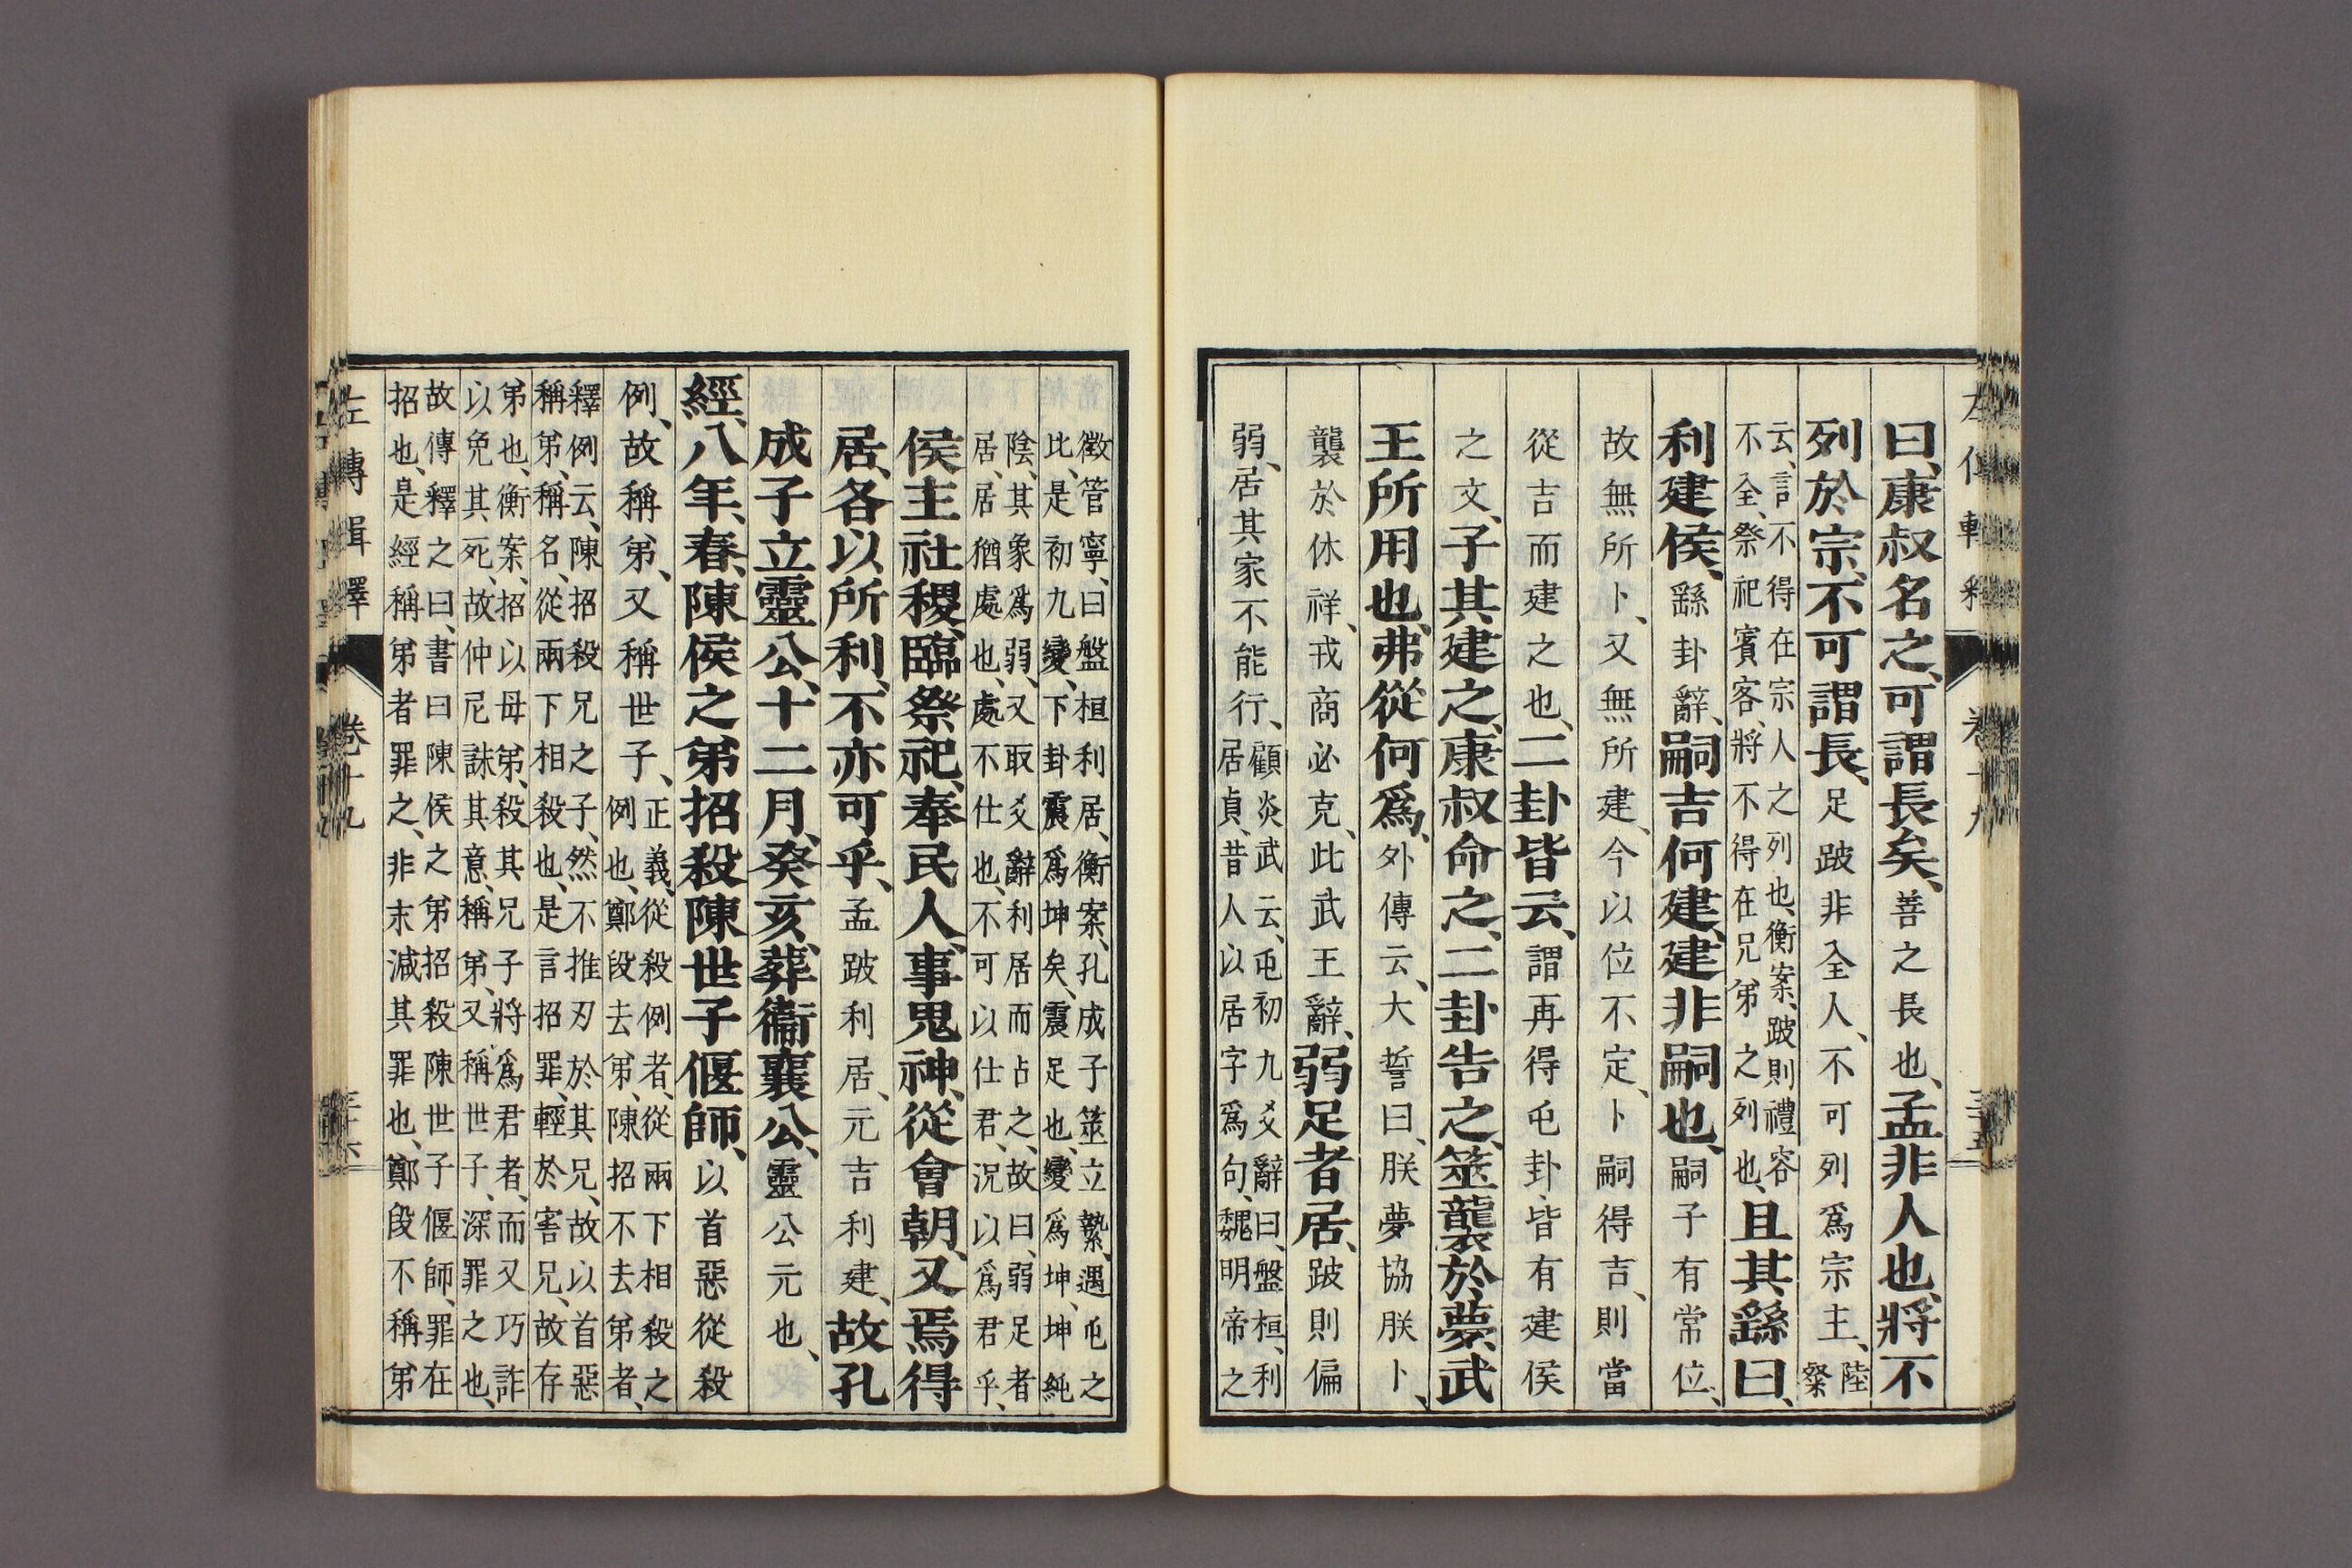 曰、康叔名之、可謂長矣、善之長也、孟非人也、將不
列於宗、不可謂長、足跛非全人、不可列爲宗主、陸粲
云、言不得在宗人之列也、衡案、跛則禮容
不全、祭祀賓客、將不得在兄弟之列也、且其繇曰、
利建侯、繇卦辭、嗣吉何建、建非嗣也、嗣子有常位、
故無所卜、又無所建、今以位不定、卜嗣得吉、則當
從吉而建之也、二卦皆云、謂再得屯卦、皆有建侯
之文、子其建之、康叔命之、二卦告之、筮襲於夢、武
王所用也、弗從何爲、外傳云、大誓曰、朕夢協朕卜、
襲於休祥、戎商必克、此武王辭、弱足者居、跛則偏
弱、居其家不能行、顧炎武云、屯初九爻辭曰、盤桓、利
居貞、昔人以居字爲句、魏明帝之
左傳輯釋 卷十九
徵管寧、曰盤桓利居、衡案、孔成子筮立縶、遇屯之
比、是初九變、下卦震爲坤矣、震足也、變爲坤、坤純
陰、其象爲弱、又取爻辭利居而占之、故曰、弱足者
居、居猶處也、處不仕也、不可以仕君、況以爲君乎、
侯主社稷、臨祭祀、奉民人、事鬼神、從會朝、又焉得
居、各以所利、不亦可乎、孟跛利居、元吉利建、故孔
成子立靈公、十二月、癸亥、葬衞襄公、靈公元也、
經、八年、春、陳侯之弟招殺陳世子偃師、以首惡從殺
例、故稱弟、又稱世子、正義、從殺例者、從兩下相殺之
例也、鄭段去弟、陳招不去弟者、
釋例云、陳招殺兄之子、然不推刃於其兄、故以首惡
稱弟、稱名、從兩下相殺也、是言招罪、輕於害兄、故存
弟也、衡案、招以母弟、殺其兄子將爲君者、而又巧詐
以免其死、故仲尼誅其意、稱弟、又稱世子、深罪之也、
故傳釋之曰、書曰陳侯之弟招殺陳世子偃師、罪在
招也、是經稱弟者罪之、非末減其罪也、鄭段不稱弟
左傳輯釋 卷十九